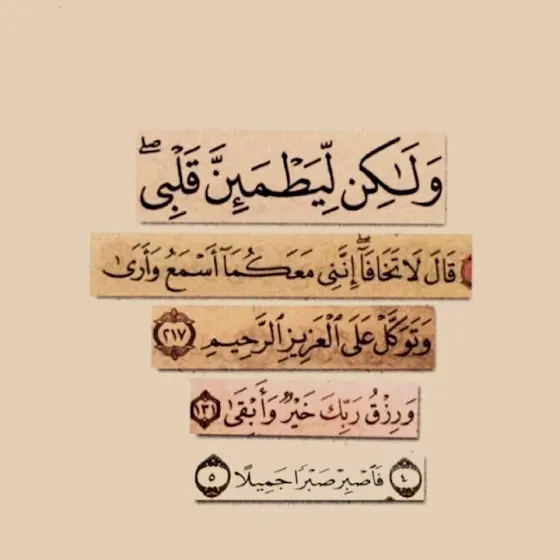 وَلَٰكِن لِّيَطْمَئِنَّ قَلْبِى ۖ
قَالَ لَا تَخَافَآ ۖ إِنَّنِى مَعَكُمَآ أَسْمَعُ وَأَرَىٰ
وَتَوَكَّلْ عَلَى ٱلْعَزِيزِ ٱلرَّحِيمِ ٢١٧
وَرِزْقُ رَبِّكَ خَيْرٌ وَأَبْقَىٰ ١٣١
٤ فَٱصْبِرْ صَبْرًا جَمِيلًا ٥